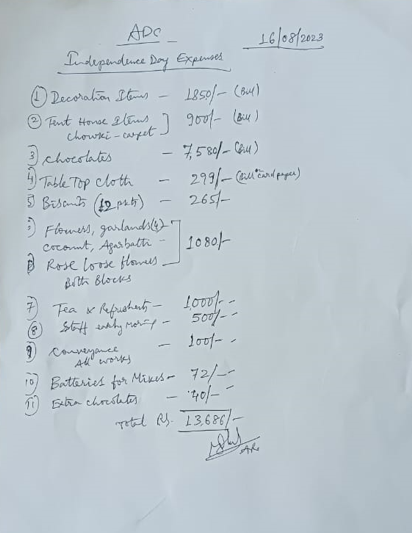 ADC
16/08/2023
Independence Day Expenses
① Decoration Items - 1850/- (Bill)
② Tent House Items
Chowki - carpet ] 900/- (Bill)
3) Chocolates - 7,580/- (Bill)
4) Table Top Cloth - 299/- (Bill card paper)
5) Biscuits (12 pkts) - 265/-
Flowers, garlands(4)
coconut, Agarbatti - 1080/-
Rose loose flowers
Both Blocks
7) Tea & Refreshments - 1000/-
⑧ Staff early morning - 500/-
9) Conveyance - 100/-
All works
10) Batteries for Mixes - 72/-
11) Extra chocolates - 40/-
Total Rs. 13,686/-